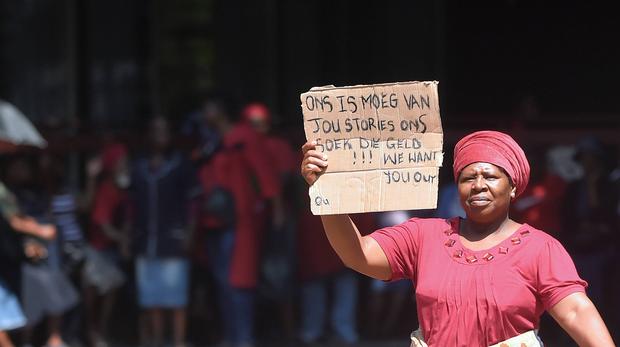 ONS IS MOEG VAN
JOU STORIES ONS
SOEK DIE GELD
!!! WE WANT
YOU OUT
Ou